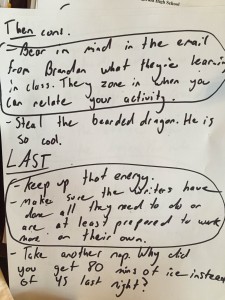 High School
Then cont.
- Bear in mind in the email
from Brandan what they're learning
in class. They zone in when you
can relate your activity.
- Steal the bearded dragon. He is
so cool.
LAST
- Keep up that energy.
- Make sure the writers have
done all they need to do or
are at least prepared to work
more on their own.
- Take another nap. Why did
you get 80 mins of ice instead
of 45 last night?